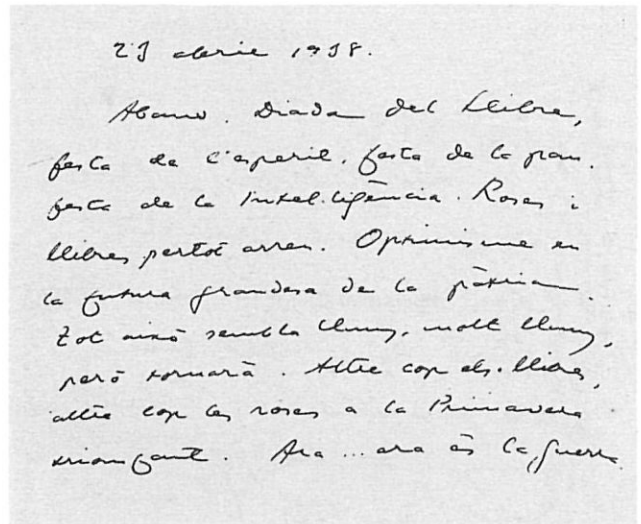 23 abril 1938.
Abans. Diada del Llibre,
festa de l'esperit, festa de la pau.
festa de la Intel·ligència. Roses i
llibres pertot arreu. Optimisme en
la futura grandesa de la pàtria.
Tot això sembla lluny, molt lluny,
però tornarà. Altre cop els llibres,
altre cop les roses a la Primavera
triomfant. Ara ... ara és la guerra